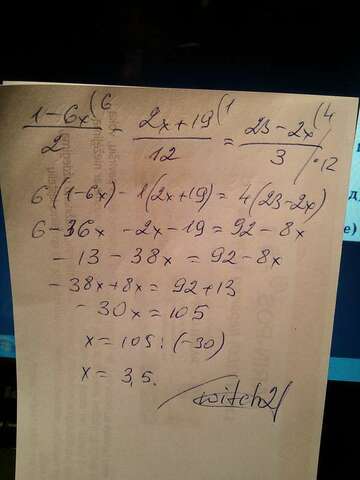 (1-6x)/2 (6 - (2x+19)/12 (1 = (23-2x)/3 (4 /·12
6(1-6x)-1(2x+19)=4(23-2x)
6-36x -2x-19=92-8x
-13-38x=92-8x
-38x+8x=92+13
-30x=105
x=105:(-30)
x=3,5.
witch21